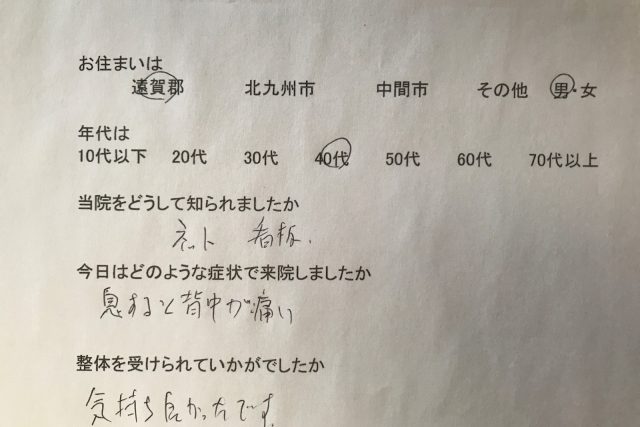 お住まいは
遠賀郡 北九州市 中間市 その他 男・女
年代は
10代以下 20代 30代 40代 50代 60代 70代以上
当院をどうして知られましたか
ネット 看板、
今日はどのような症状で来院しましたか
息すると背中が痛い
整体を受けられていかがでしたか
気持ち良かったです。